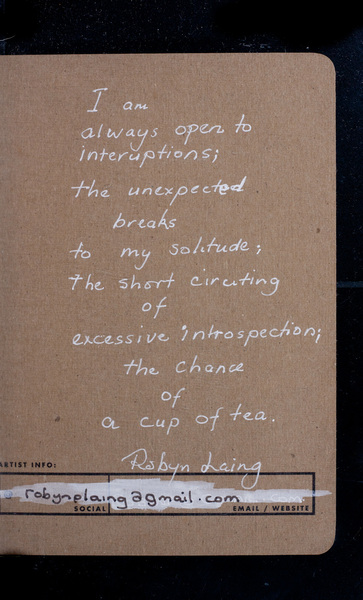 I am
always open to
interuptions;
the unexpected
breaks
to my solitude;
The short circuting
of
excessive introspection;
the chance
of
a cup of tea.
Robyn Laing
ARTIST INFO:
robynplaing@gmail.com
SOCIAL EMAIL / WEBSITE